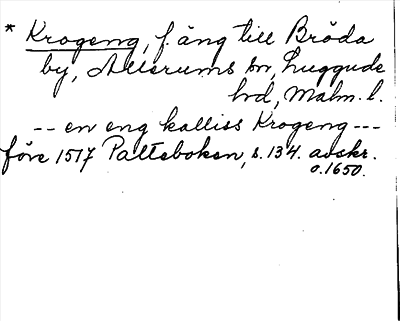 * Krogeng, f. äng till Bröda
by, Allerums sn, Luggude
hd, Malm. l.
-- en eng kalliss Krogeng ---
före 1517 Palteboken, s. 134. avskr.
o. 1650.